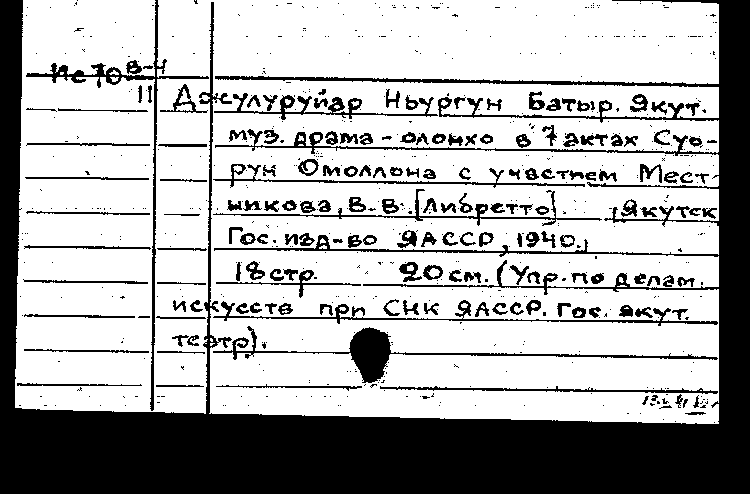 Ис 70 В-4
11 Джулуруйар Ньургун Батыр. Якут.
муз. драма - олонхо в 7 актах Суо-
рун Омоллона с участием Мест-
никова, В. В. [Либретто]. Якутск
Гос. изд-во ЯАССР, 1940.
18 стр. 20 см. (Упр. по делам
искусств при СНК ЯАССР. Гос. якут.
театр).